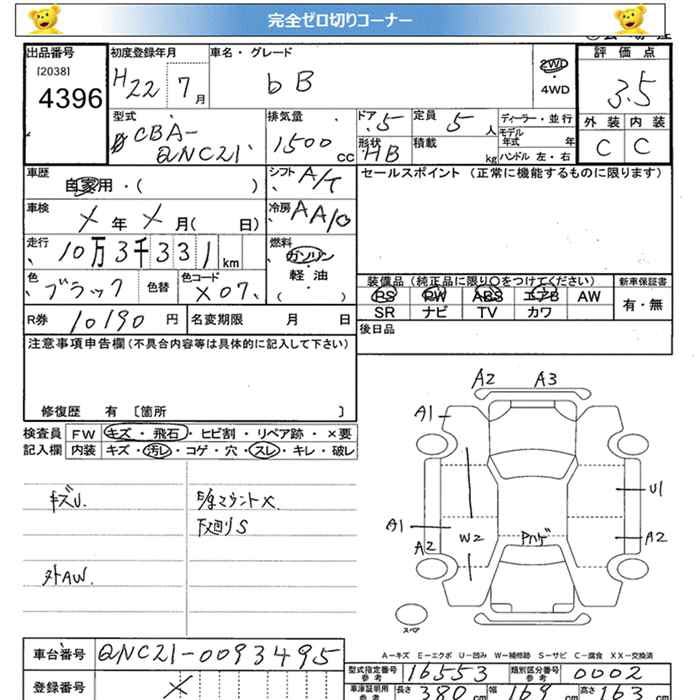 完全ゼロ切りコーナー
出品番号
[2038]
4396
初度登録年月
H22 7月
車名・グレード
bB
2WD
・
4WD
評価点
3.5
外装 内装
C C
型式
CBA-
QNC21
排気量
1500cc
ドア 5
形状 HB
定員 5人
積載 kg
ディーラー・並行
モデル
年式 年
ハンドル 左・右
車歴
自家用・( )
シフト A/T
セールスポイント (正常に機能するものに限ります)
車検
X年X月( 日)
冷房 AA/C
走行
10万3千331km
燃料
ガソリン
軽・油
・( )
色
ブラック
色替
色コード
X07
装備品(純正品に限り○をつけてください)
PS PW ABS エアB AW
SR ナビ TV カワ
新車保証書
有・無
R券 10190円
名変期限 月 日
後日品
注意事項申告欄(不具合内容等は具体的に記入して下さい)
修復歴 有 〔箇所 〕
検査員 FW キズ・飛石・ヒビ割・リペア跡・×要
記入欄 内装 キズ・汚レ・コゲ・穴・スレ・キレ・破レ
キズU.
マウントX.
下廻りS
外AW.
A2 A3
A1
U1
A1
A2
W2
Pハゲ
A2
スペア
A-キズ E-エクボ U-凹み W-補修跡 S-サビ C-腐食 XX-交換済
車台番号 QNC21-0093495
登録番号 X
型式指定番号
参考
16553
類別区分番号
参考
0002
車庫証明用
参考
長さ 380cm 幅 169cm 高さ 163cm